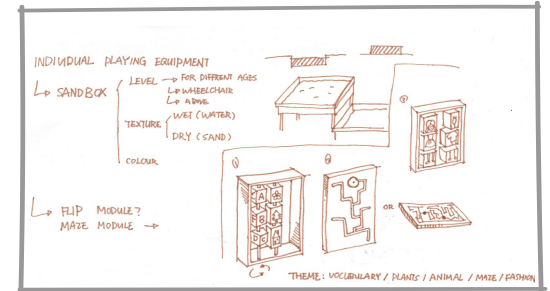 INDIVIDUAL PLAYING EQUIPMENT
SANDBOX
LEVEL → FOR DIFFRENT AGES
WHEELCHAIR
ABOVE
TEXTURE
WET (WATER)
DRY (SAND)
COLOUR
FLIP MODULE?
MAZE MODULE →
1
2
3
A
B
OR
THEME: VOCLEBULARY / PLANTS / ANIMAL / MAZE / FASHION